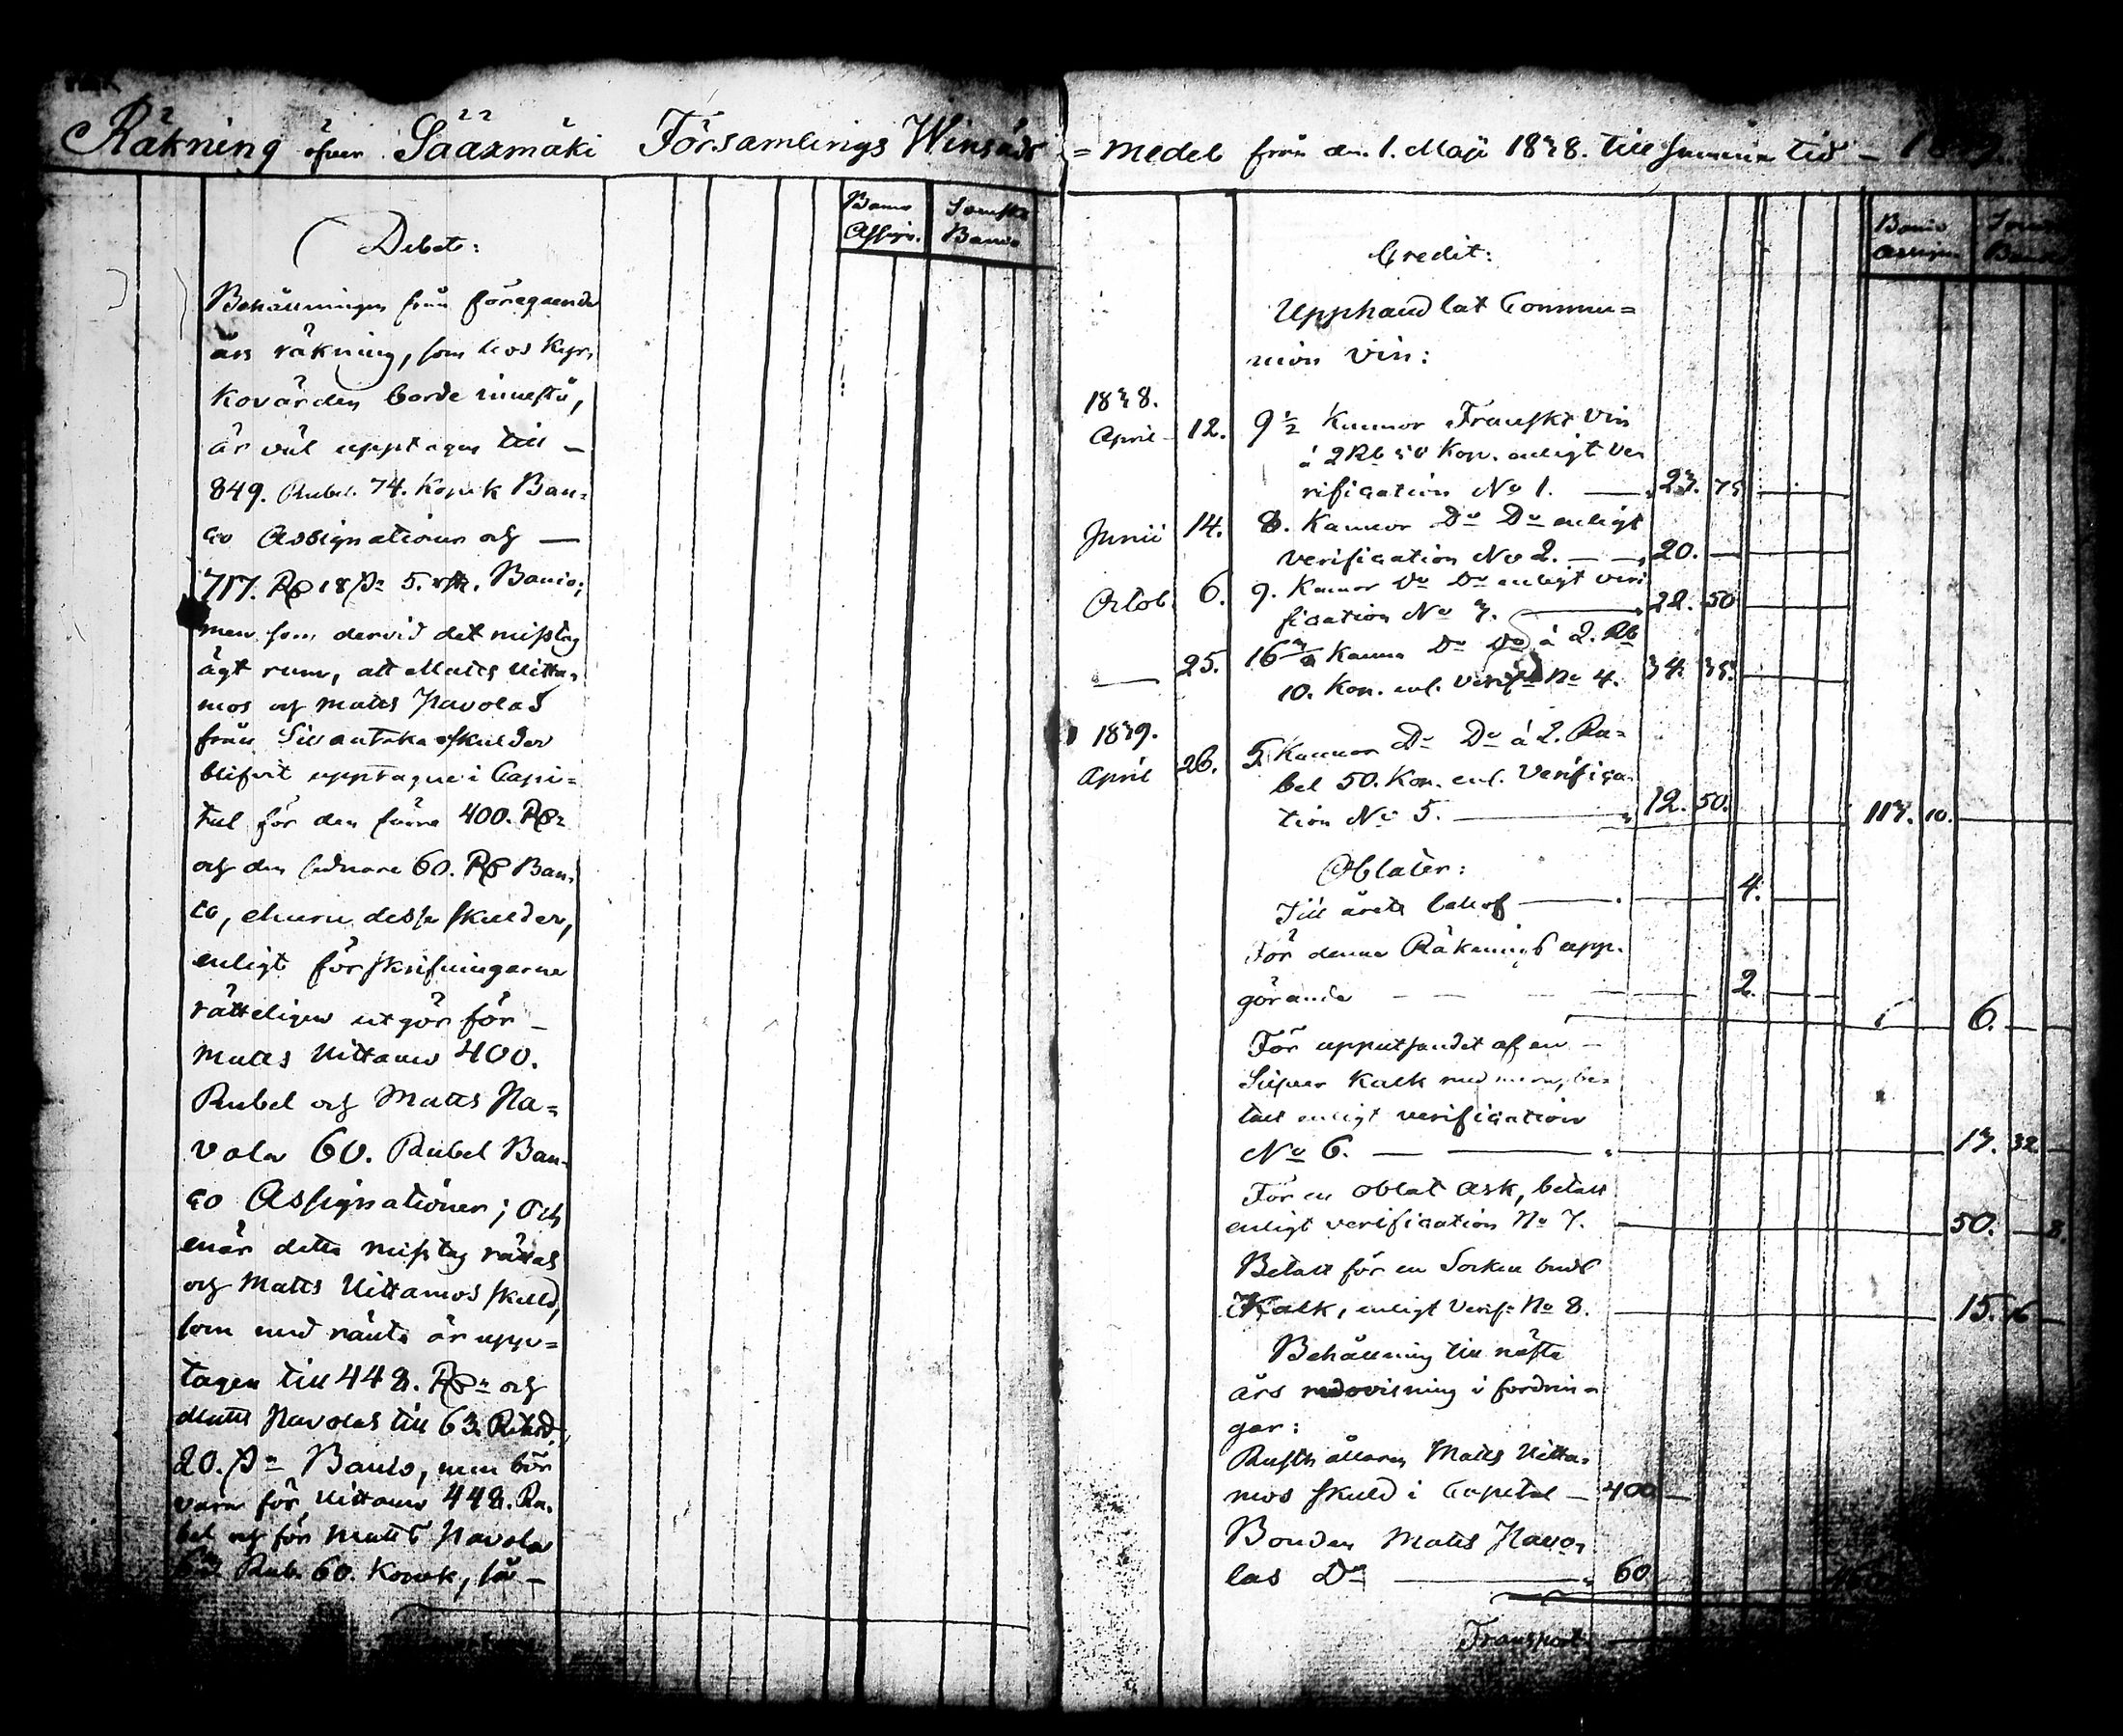 Räkning öfver Sääxmäki Församlings Winsäds = medel från den 1. Maji 1838. till samma tid – 1839.
Debet:
Banco Assign.
Svenskt Banco
Behållningen från föregaende
års räkning, som hos Kyr,
kovärden borde innestå,
är väl upptagen till –
849. Rubel. 74. Kopek Ban=
co Assignationer och —
717. Rd 18 s. 5. rst. Banco;
men som dervid det misstag
ägt rum, att Matts Uitta,
mos och Matts Navolas
från skulder
blifvit upptagne i Capi=
tal för den förra 400. Rd
och den sednare 60. Rd Ban,
co, ehuru dessa skulder,
enligt förskrifningarne
rätteligen utgör för –
Matts Uittamo 400.
Rubel och Matts Na=
vola 60. Rubel Ban-
co Assignationer; Och
enär detta misstag rättas
och Matts Uittamos skuld,
som med ränta är upp=
tagen till 448. Rd och
Matts Navolas till 63. Riksd,
20. s. Banco, men bör
vara för Uittamo 448. Ru,
bel och för Matts Navola
Rub. 60. Kopek, så –
Credit:
Banco Assign.
Svenskt Banco
Upphandlat Commu=
nion vin:
1838.
April – 12. 9 ½ Kannor Franskt vin
á 2 Rb 50 Kop. enligt ve
rification No 1. — 23. 75
Junii 14. 8. Kannor Do Do enligt
verification No 2. — 20. —
Octob. 6. 9. Kannor Do Do enligt veri
fication No 3. — 22. 50
— 25. 16 Kanna Do Do á 2. Rb
10. Kop. enl. Verif. No 4. 34. 35.
1839.
April 26. 5. Kannor Do Do á 2. Ru=
bel 50. Kop. enl. Verifica
tion No 5. — 12. 50. 113. 10.
Oblater:
Till årets behof — 4.
För denna Räknings upp-
görande — 2. 6.
För upputsandet af en –
Silfver Kalk med mera, be=
talt enligt verification
No 6. — 13. 32
För en oblat ask, betalt
enligt verification No 7. 50. — 8.
Betalt för en Socken buds
Kalk, enligt Verif. No 8. — 15. 16
Behållning till nästa
års redovisning i fordrin=
gar:
Rusthållaren Matts Uitta,
mos skuld i Capital – 400 –
Bonden Matts Navo,
las Do — 60
Transport